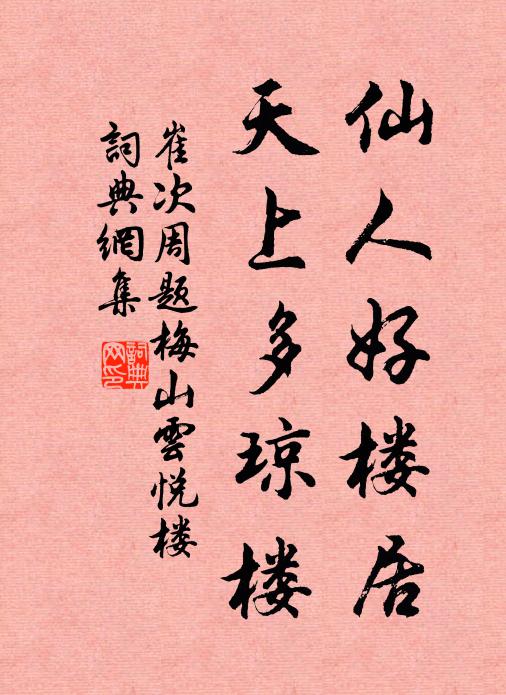 仙人好楼居
天上多琼楼
崔次周题梅山雲悦楼
詞典網集
詞典
网印